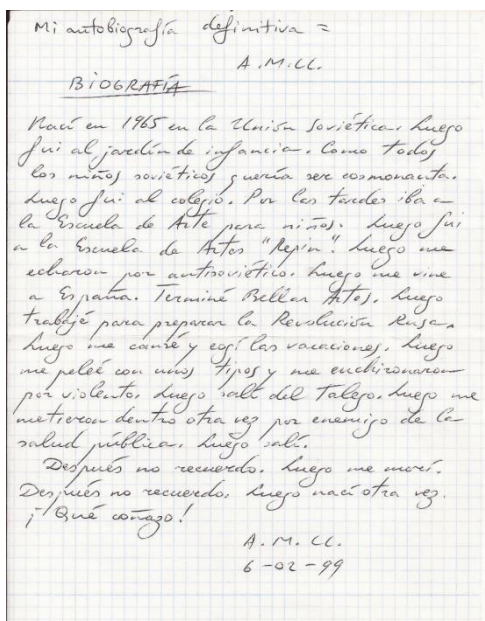 Mi autobiografía definitiva =
A.M.Cl.
BIOGRAFÍA
Nací en 1965 en la Unión Soviética. Luego
fui al jardín de infancia. Como todos
los niños soviéticos quería ser cosmonauta.
Luego fui al colegio. Por las tardes iba a
la Escuela de Arte para niños. Luego fui
a la Escuela de Artes "Repin". Luego me
echaron por antisoviético. Luego me vine
a España. Terminé Bellas Artes. Luego
trabajé para preparar la Revolución Rusa.
Luego me cansé y cogí las vacaciones. Luego
me peleé con unos tipos y me enchironaron
por violento. Luego salí del Talego. Luego me
metieron dentro otra vez por enemigo de la
salud pública. Luego salí.
Después no recuerdo. Luego me morí.
Después no recuerdo. Luego nací otra vez.
¡Qué coñazo!
A.M.Cl.
6-02-99